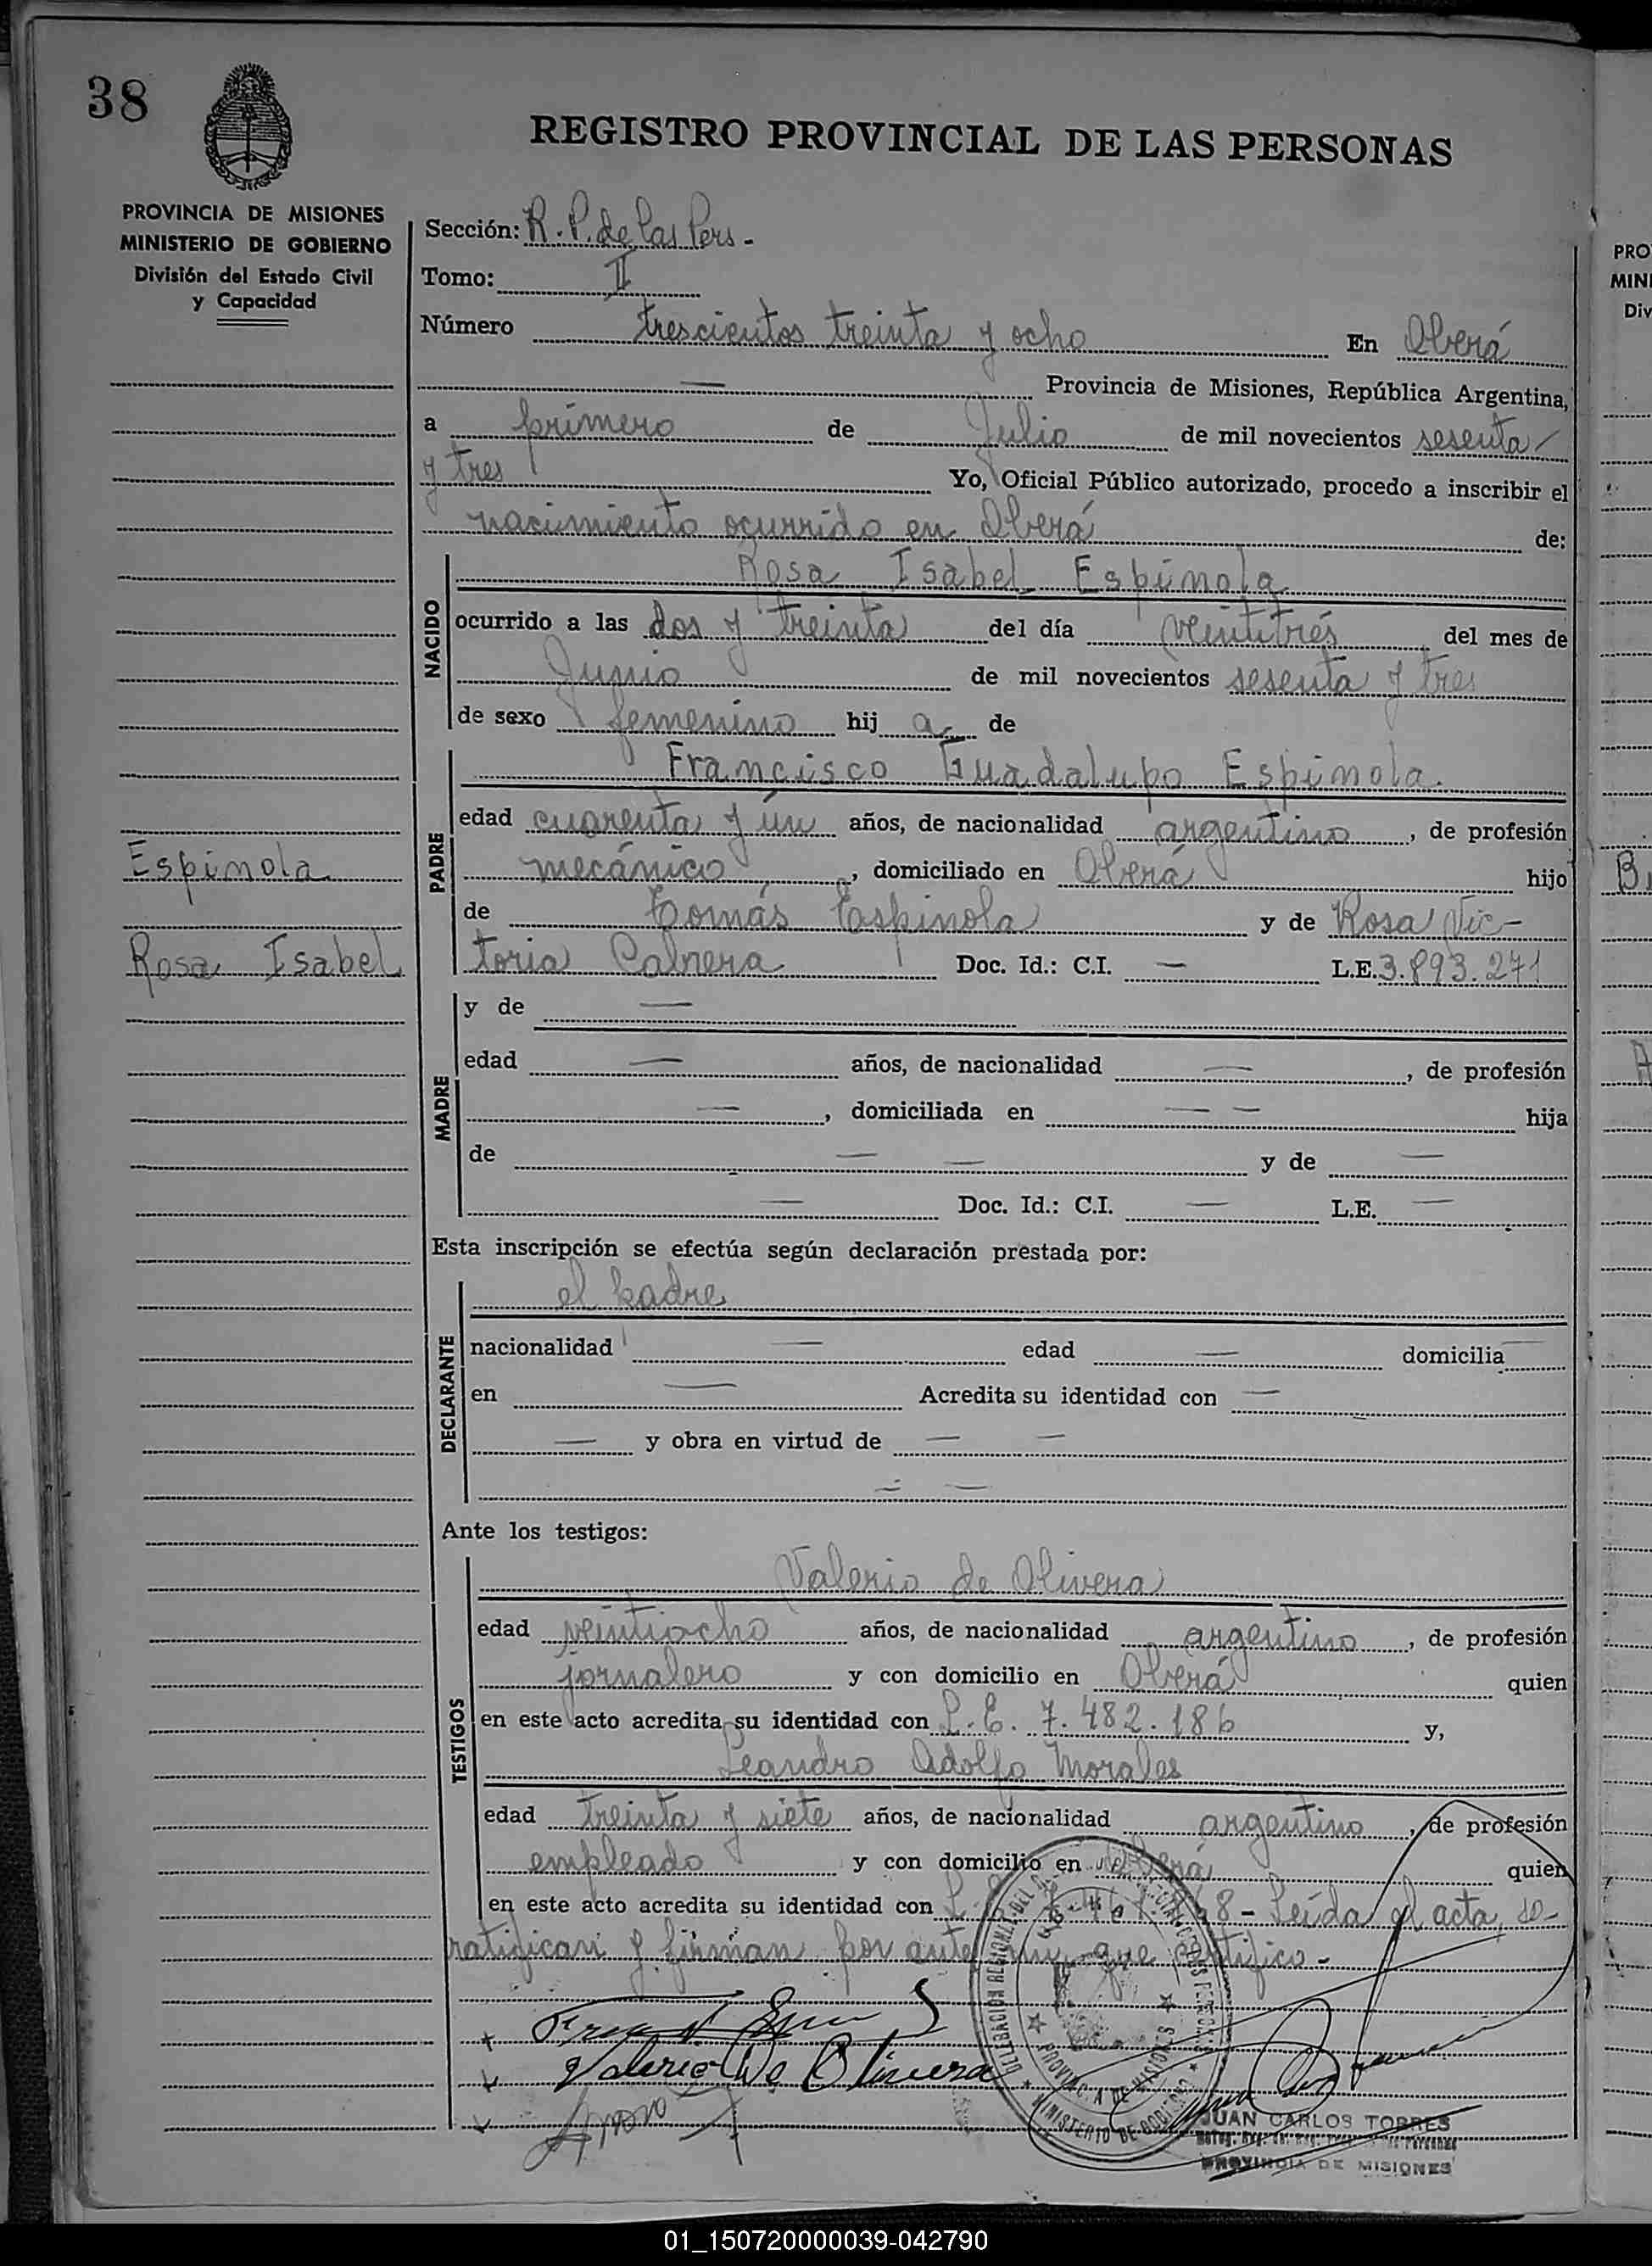 38
REGISTRO PROVINCIAL DE LAS PERSONAS
PROVINCIA DE MISIONES
MINISTERIO DE GOBIERNO
División del Estado Civil
y Capacidad
Sección: R. P. de las Pers.-
Tomo: II
Número trescientos treinta y ocho En Oberá
— Provincia de Misiones, República Argentina,
a primero de Julio de mil novecientos sesenta
y tres Yo, Oficial Público autorizado, procedo a inscribir el
nacimiento ocurrido en Oberá de:
NACIDO
Rosa Isabel Espínola
ocurrido a las dos y treinta del día veintitrés del mes de
Junio de mil novecientos sesenta y tres
de sexo femenino hij a de
PADRE
Francisco Guadalupo Espínola.
edad cuarenta y un años, de nacionalidad argentino, de profesión
mecánico, domiciliado en Oberá hijo
de Tomás Espínola y de Rosa Vic-
toria Cabrera Doc. Id.: C.I. — L.E. 3.893.271
Espínola
Rosa Isabel
MADRE
y de —
edad — años, de nacionalidad —, de profesión
—, domiciliada en — — hija
de — — y de —
— Doc. Id.: C.I. — L.E. —
Esta inscripción se efectúa según declaración prestada por:
DECLARANTE
el padre
nacionalidad — edad — domicilia —
en — Acredita su identidad con —
— y obra en virtud de — —
— —
Ante los testigos:
TESTIGOS
Valerio de Olivera
edad veintiocho años, de nacionalidad argentino, de profesión
jornalero y con domicilio en Oberá quien
en este acto acredita su identidad con L.E. 7.482.186 y,
Leandro Adolfo Morales
edad treinta y siete años, de nacionalidad argentino, de profesión
empleado y con domicilio en Oberá quien
en este acto acredita su identidad con 68- Leída el acta, se
ratifican y firman por ante mí que certifico.-
Valerio De Olivera
DELEGACION REGIONAL DEL
PROVINCIA DE MISIONES
MINISTERIO DE GOBIERNO
JUAN CARLOS TORRES
PROVINCIA DE MISIONES
PRO
MINI
Div
01_150720000039-042790